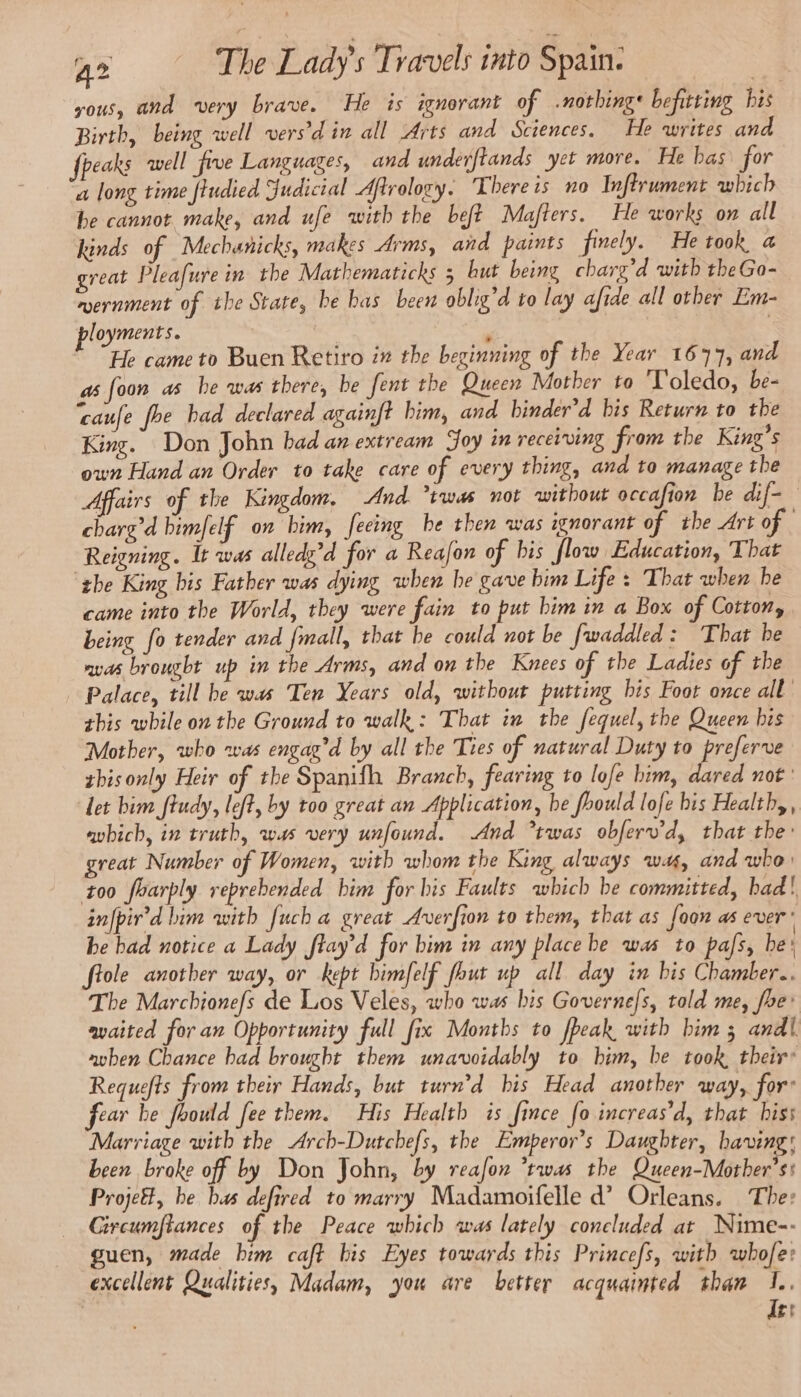 42 The Lady's Travels into Spain.
rous, and very brave. He is ignorant of nothing befitting his
Birth, being well vers'd in all Arts and Sciences. He writes and
ſpeaks well five Languages, and underſtands yet more. He has for
a long time ſtudied Judicial Aſtrology. There is no Inſtrument which
he cannot make, and uſe with the beſt Maſters. He works on all
kinds of Mechanicks, makes Arms, and paints finely. He took a
great Pleaſure in the Mathematicks; but being charg'd with the Go-
vernment of the State, he has been oblig'd to lay aſide all other Em-
ployments.
He came to Buen Retiro in the beginning of the Year 1677, and
as ſoon as he was there, he ſent the Queen Mother to Toledo, be-
cauſe ſhe had declared againſt him, and hinder'd his Return to the
King. Don John had an extream Joy in receiving from the King's
own Hand an Order to take care of every thing, and to manage the
Affairs of the Kingdom. And 'twas not without occaſion he diſ-
charg'd himſelf on him, ſeeing he then was ignorant of the Art of
Reigning. It was alledg'd for a Reaſon of his ſlow Education, That
the King his Father was dying when he gave him Life: That when he
came into the World, they were fain to put him in a Box of Cotton,
being ſo tender and ſmall, that he could not be ſwaddled: That he
was brought up in the Arms, and on the Knees of the Ladies of the
Palace, till he was Ten Years old, without putting his Foot once all
this while on the Ground to walk: That in the ſequel, the Queen his
Mother, who was engag'd by all the Ties of natural Duty to preſerve
this only Heir of the Spaniſh Branch, fearing to loſe him, dared not
let him ſtudy, leſt, by too great an Application, he ſhould loſe his Health,
which, in truth, was very unſound. And 'twas obſerv'd, that the
great Number of Women, with whom the King always was, and who
too ſharply reprehended him for his Faults which he committed, had
inſpir'd him with ſuch a great Averſion to them, that as ſoon as ever
he had notice a Lady ſtay'd for him in any place he was to paſs, he
ſtole another way, or kept himſelf ſhut up all day in his Chamber.
The Marchioneſs de Los Veles, who was his Governeſs, told me, ſhe
waited for an Opportunity full ſix Months to ſpeak with him; and
when Chance had brought them unavoidably to him, he took their
Requeſts from their Hands, but turn'd his Head another way, for
fear he ſhould ſee them. His Health is ſince ſo increas'd, that his
Marriage with the Arch-Dutcheſs, the Emperor's Daughter, having
been broke off by Don John, by reaſon 'twas the Queen-Mother's
Project, he has deſired to marry Madamoiſelle d' Orleans. The
Circumſtances of the Peace which was lately concluded at Nime-
guen, made him caſt his Eyes towards this Princeſs, with whoſe
excellent Qualities, Madam, you are better acquainted than I.